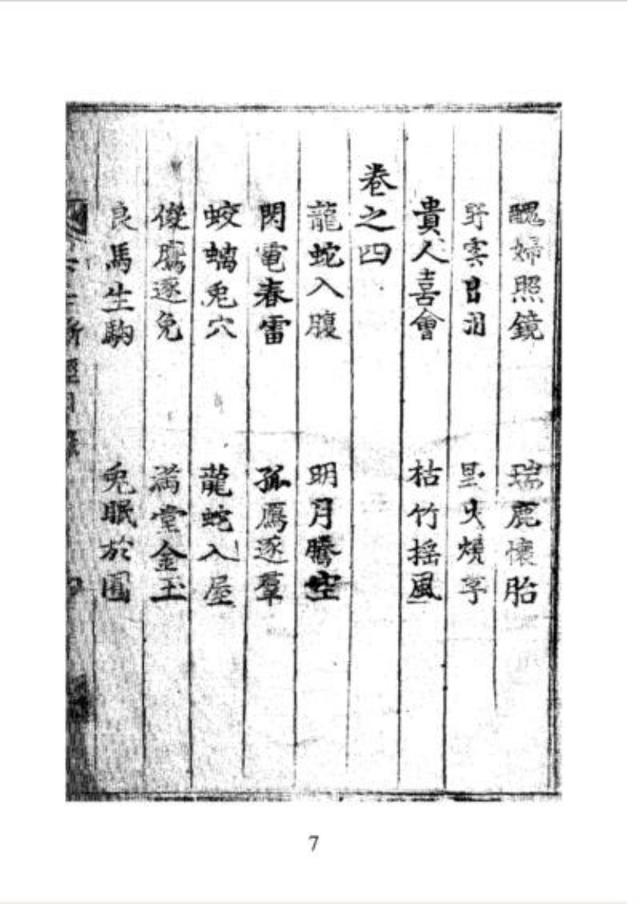 醜婦照鏡 瑞鹿懷胎
野雲 火
貴人喜會 枯竹揺風
卷之四
龍蛇入腹 明月騰空
閃電春雷 孤鴈逐羣
蛟螭兎穴 龍蛇入屋
俊鷹逐兔 滿堂金玉
良馬生駒 兔眠於園
7